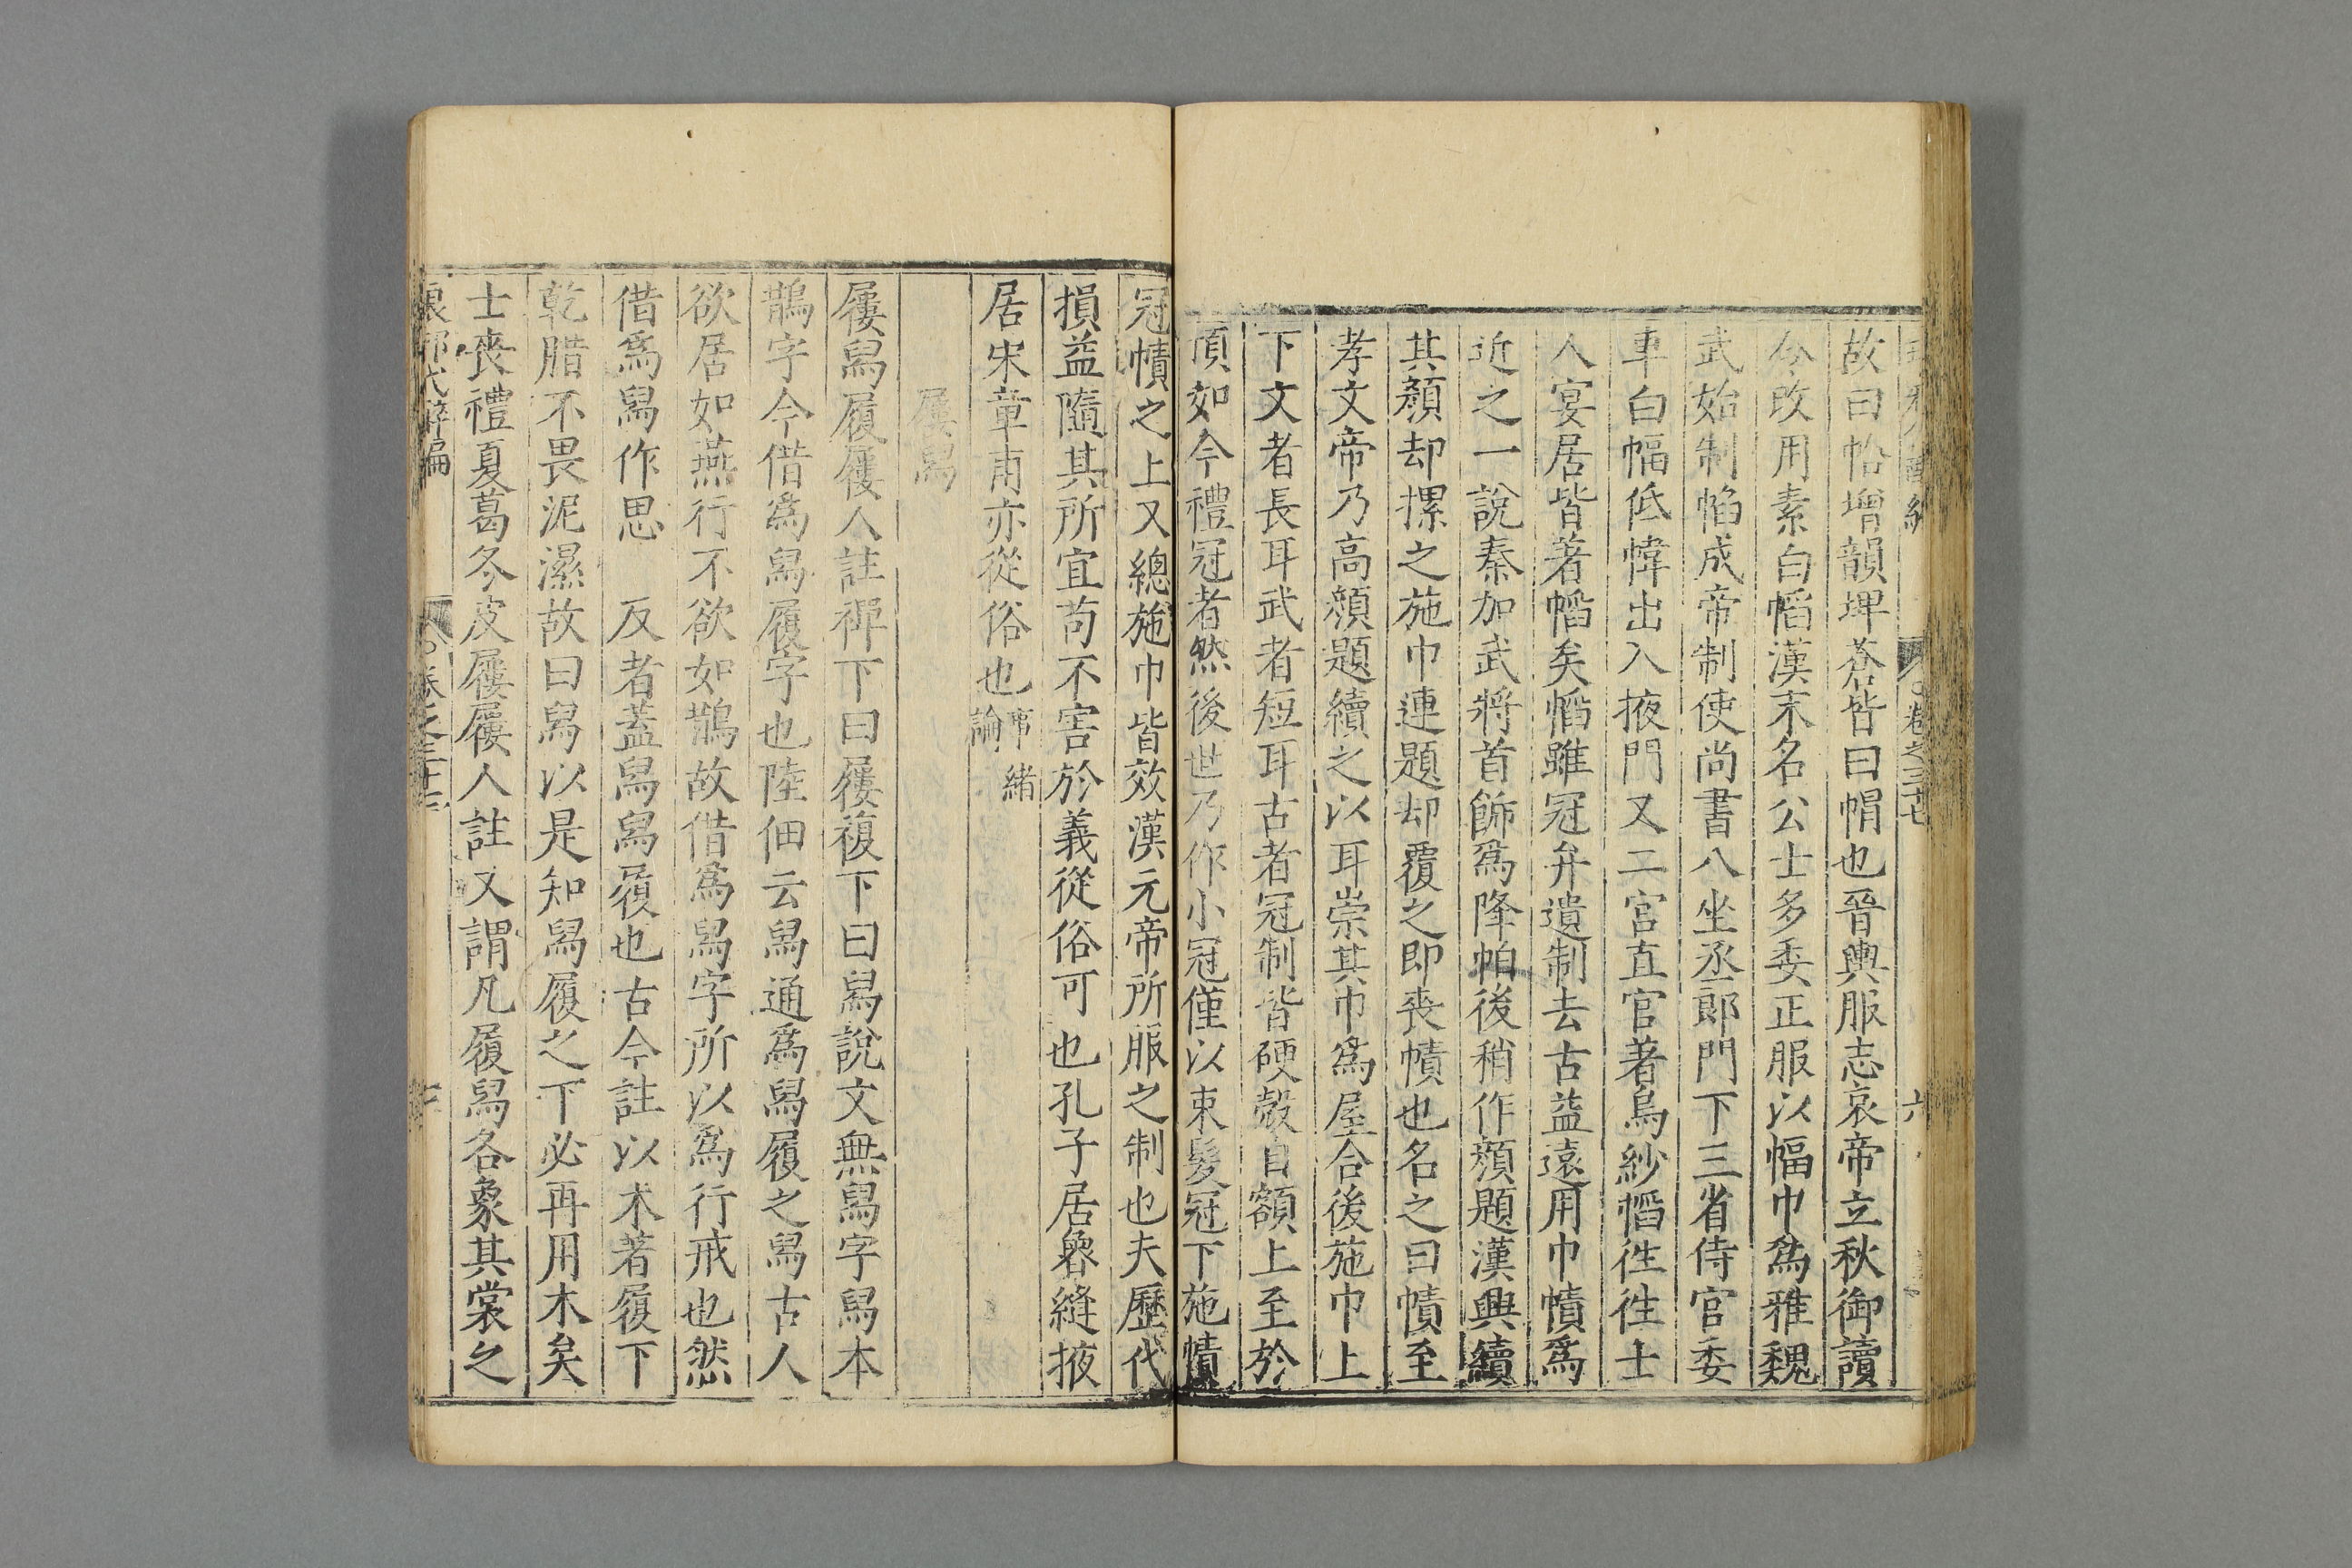 卷之三十七 六
故曰帢增韻埤蒼皆曰帽也晉輿服志哀帝立秋御讀
令改用素白㡌漢末名公士多委正服以幅巾爲雅魏
武始制帢成帝制使尚書八坐丞郎門下三省侍官委
車白幅低幃出入掖門又二宮直官著烏紗㡌徃徃士
人宴居皆著㡌矣㡌雖冠弁遺制去古益遠用巾幘爲
近之一說秦加武將首飾爲降帕後稍作顏題漢興續
其顏却摞之施巾連題却覆之即喪幘也名之曰幘至
孝文帝乃高顏題續之以耳崇其巾爲屋合後施巾上
下文者長耳武者短耳古者冠制皆硬殼自額上至於
頂如今禮冠者然後世乃作小冠僅以束髮冠下施幘
冠幘之上又總施巾皆效漢元帝所服之制也夫歷代
損益隨其所宜苟不害於義從俗可也孔子居魯縫掖
居宋章甫亦從俗也事緒論
屨舄
屨舄履屨人註襌下曰屨複下曰舄說文無舄字舄本
鵲字今借爲舄履字也陸佃云舄通爲舄履之舄古人
欲居如燕行不欲如鵲故借爲舄字所以爲行戒也然
借爲舄作思 反者蓋舄舄履也古今註以木著履下
乾腊不畏泥濕故曰舄以是知舄履之下必再用木矣
士喪禮夏葛冬皮屨屨人註又謂凡履舄各象其裳之
琅邪代醉編 卷之三十七